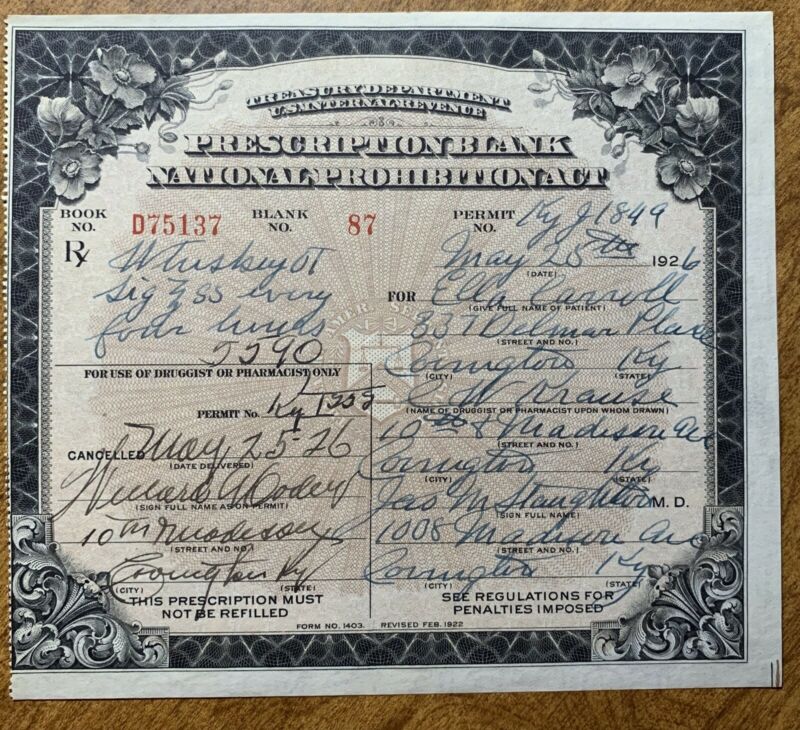 TREASURY DEPARTMENT
U.S. INTERNAL REVENUE
PRESCRIPTION BLANK
NATIONAL PROHIBITION ACT
BOOK NO. D75137 BLANK NO. 87 PERMIT NO. Ky J 1849
Rx
Whiskey OT
Sig ʒ ss every
four hours
5590
May 25th 1926
(DATE)
FOR Ella Carroll
(GIVE FULL NAME OF PATIENT)
337 Delmar Place
(STREET AND NO.)
Covington Ky
(CITY) (STATE)
C W Krause
(NAME OF DRUGGIST OR PHARMACIST UPON WHOM DRAWN)
10th & Madison Ave
(STREET AND NO.)
Covington Ky
(CITY) (STATE)
Jas M Staughton M. D.
(SIGN FULL NAME)
1008 Madison Ave
(STREET AND NO.)
Covington Ky
(CITY) (STATE)
SEE REGULATIONS FOR
PENALTIES IMPOSED
FOR USE OF DRUGGIST OR PHARMACIST ONLY
PERMIT No. Ky
CANCELLED May 25-26
(DATE DELIVERED)
(SIGN FULL NAME AS ON PERMIT)
10th
(STREET AND NO.)
Covington Ky
(CITY) (STATE)
THIS PRESCRIPTION MUST
NOT BE REFILLED
FORM NO. 1403. REVISED FEB. 1922